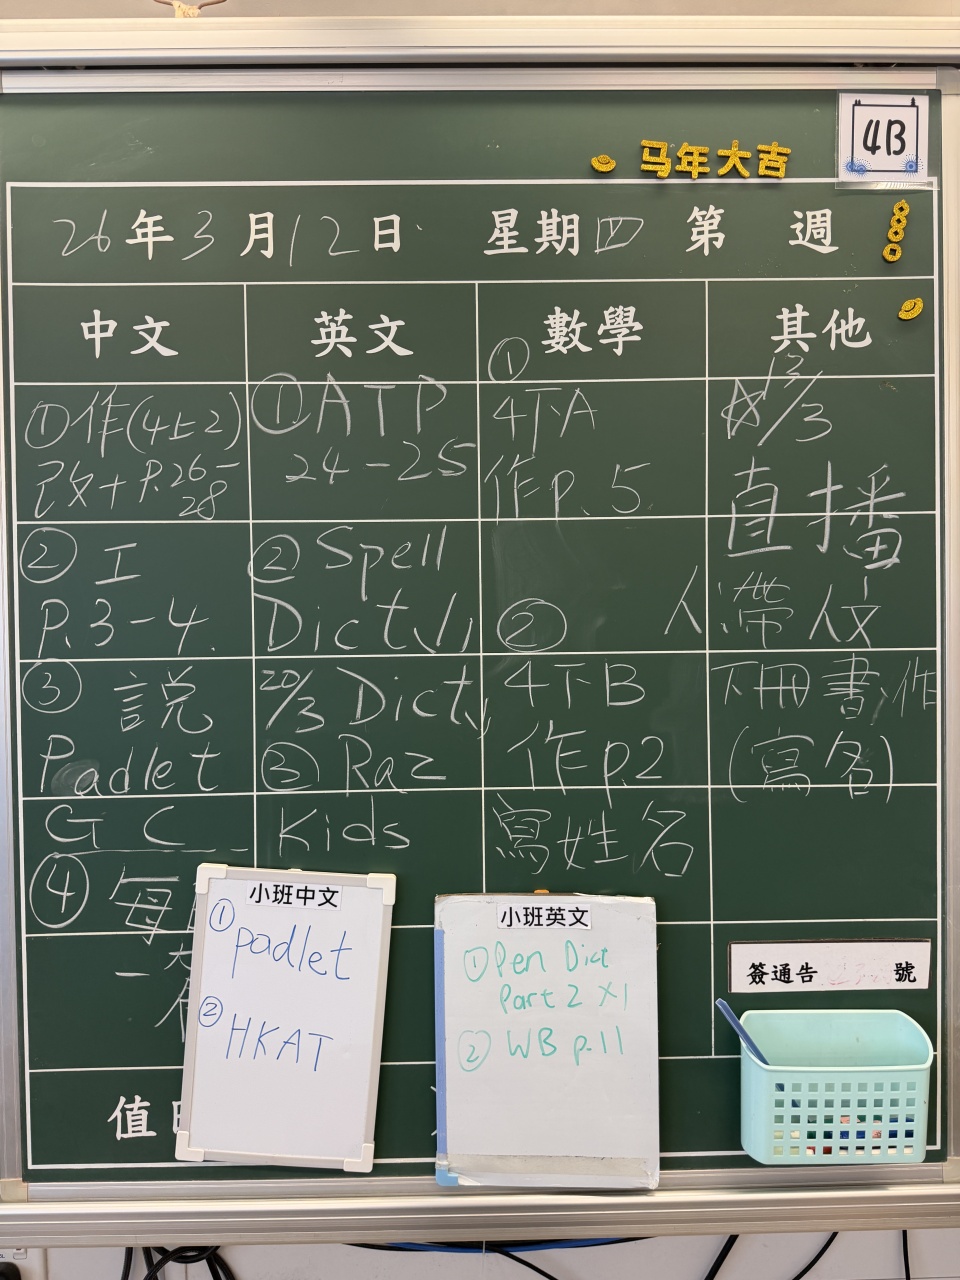 4B
马年大吉
26年3月12日 星期四 第 週
中文
①作(4上2)
改+P.26-
28
②工
P.3-4.
③說
Padlet
GC
④每
一
英文
①ATP
24-25
②Spell
Dict
20/3 Dict
③Raz
Kids
數學
①
4下A
作p.5
②
4下B
作p.2
寫姓名
其他
13/3
直播
人帶人仪
下冊書,作
(寫名)
小班中文
①padlet
②HKAT
小班英文
①Pen Dict
Part 2 X1
②WB p.11
簽通告 號
值